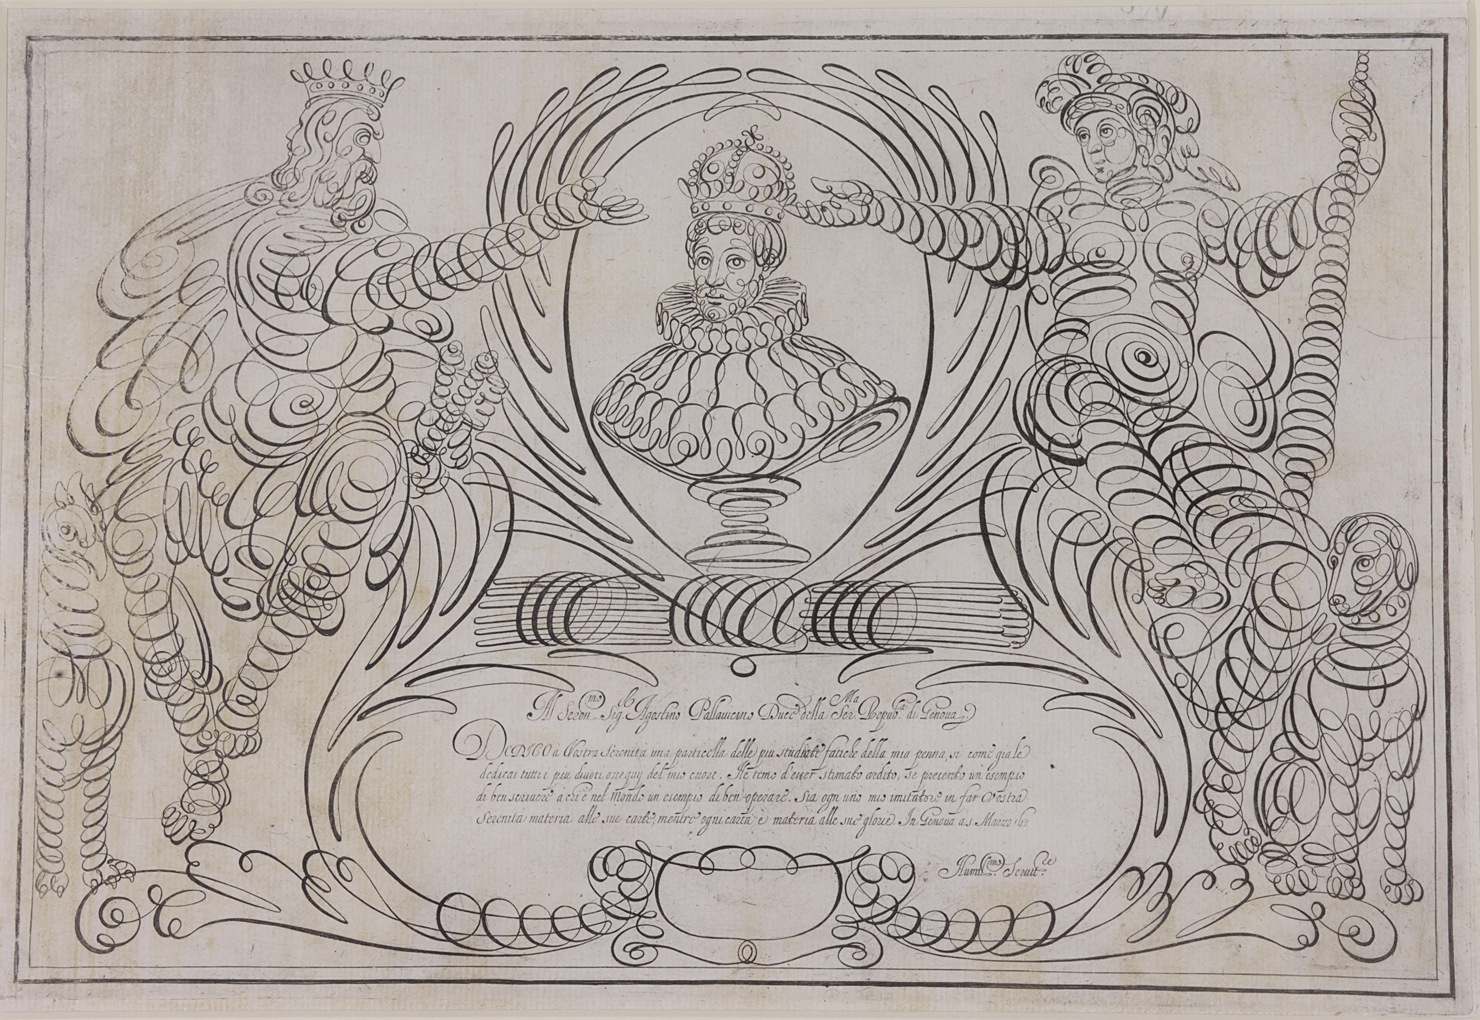 Al Seren.mo Sig.re Agostino Pallavicino Duce della Ser.ma Repub.a di Genova
DEDICO a Vostra Serenità una particella delle piu studiose fatiche della mia penna, si come gia le
dedicai tutti i piu divoti ossequij del mio cuore. Ne temo d'esser stimato ardito, se presento un esempio
di ben scrivere a chi è nel Mondo un esempio di ben operare. Sia ogn' uno mio imitatore in far Vostra
Serenità materia alle sue carte, mentre ogni carta è materia alle sue glorie. In Genova a 5 Marzo 163
Humil.mo Servit.re